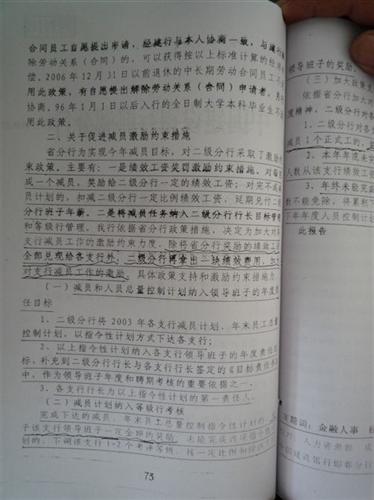 合同员工自愿提出申请，经建行与本人协商一致，与建
除劳动关系（合同）的，可以获得按以上标准计算的经济
偿。2006年12月31日以前退休的中长期劳动合同员工不
用此政策，有自愿提出解除劳动关系（合同）申请者，
协商。96年1月1日以后入行的全日制大学本科毕业生不
用此政策。
二、关于促进减员激励约束措施
省分行为实现今年减员目标，对二级分行采取了激励
束政策，主要有：一是绩效工资奖罚激励约束措施，对每
成一个减员，奖励给二级分行一定的绩效工资；对完不成
员计划的，扣减二级分行一定比例绩效工资，延期兑付二
分行班子年薪。二是将减员任务纳入二级分行行长目标管
和等级行管理。我行依据省分行政策，决定为加大对
支行减员工作的激励约束力度，除将省分行奖励的绩效工
全部兑现给各支行外，二级分行再拿出一块绩效费用，加
对支行减员工作的激励。具体政策支持和激励约束措施是
（一）减员和人员总量控制计划纳入领导班子的年度
任目标
1、二级分行将2003年各支行减员计划、年末员工总
控制计划，以指令性计划方式下达各支行；
2、以指令性计划纳入各支行领导班子的年度责任
标，补充到二级分行行长与各支行行长签定的《目标责任
中，作为领导班子年度和聘期考核的重要依据之一。
3、各支行行长为以上指令性计划的第一责任人。
（二）减员计划纳入等级行考核
完成下达的减员、年末员工总量控制性计划的，
子该支行领导班子一定金额的奖励。未能完成
划的，下调该支行1-2个考评等级，
75
领导班子的奖励。
（三）加大政策支
依据省分行加大
度精神，二级分行
1、二级分行对各
减员1个正式工的，
2、本年年底未完
人数从该支行绩效工
3、年终未能完
数不能免除，将累积
下年年度人员控制计
此报告
主题词：金融 人事